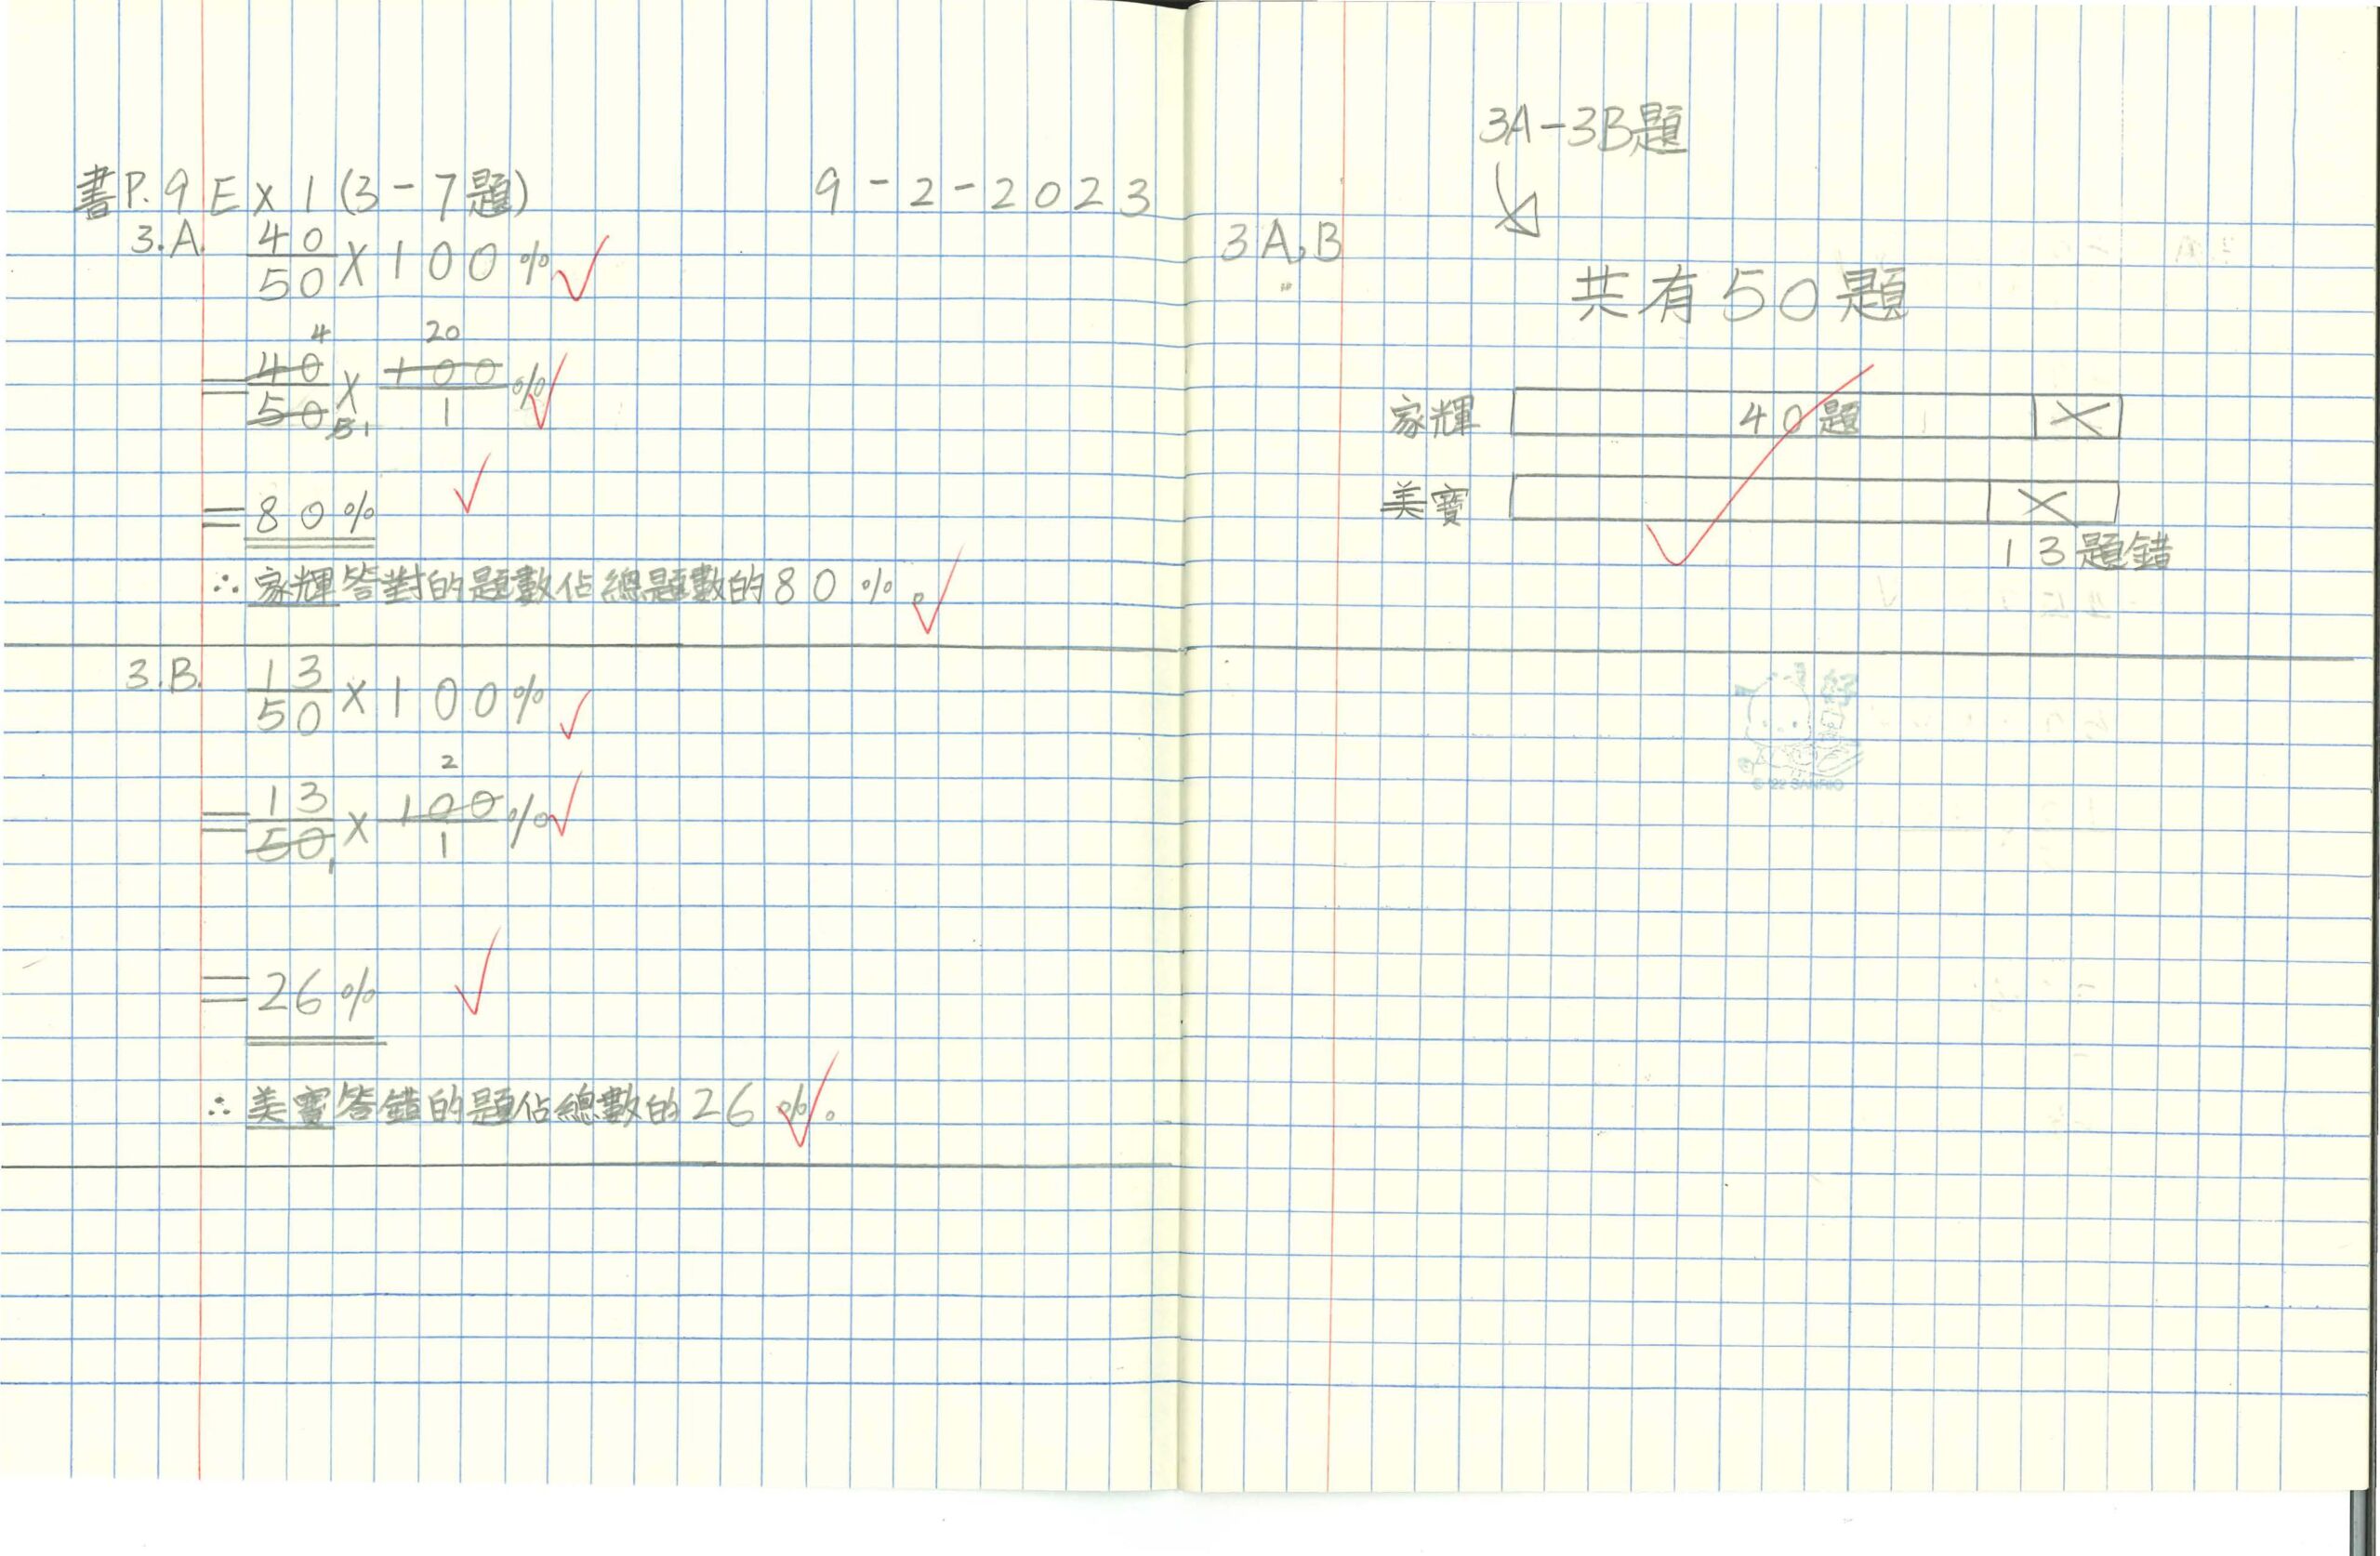 書P.9 Ex1(3-7題) 9-2-2023
3.A. 40/50 × 100%
4 20
= 40/50 × 100/1 %
5 1
= 80%
∴ 家輝答對的題數佔總題數的80%。
3.B. 13/50 × 100%
2
= 13/50 × 100/1 %
1
= 26%
∴ 美寶答錯的題佔總數的26%。
3A-3B題
3A,B
共有50題
家輝 40題
美寶
13題錯